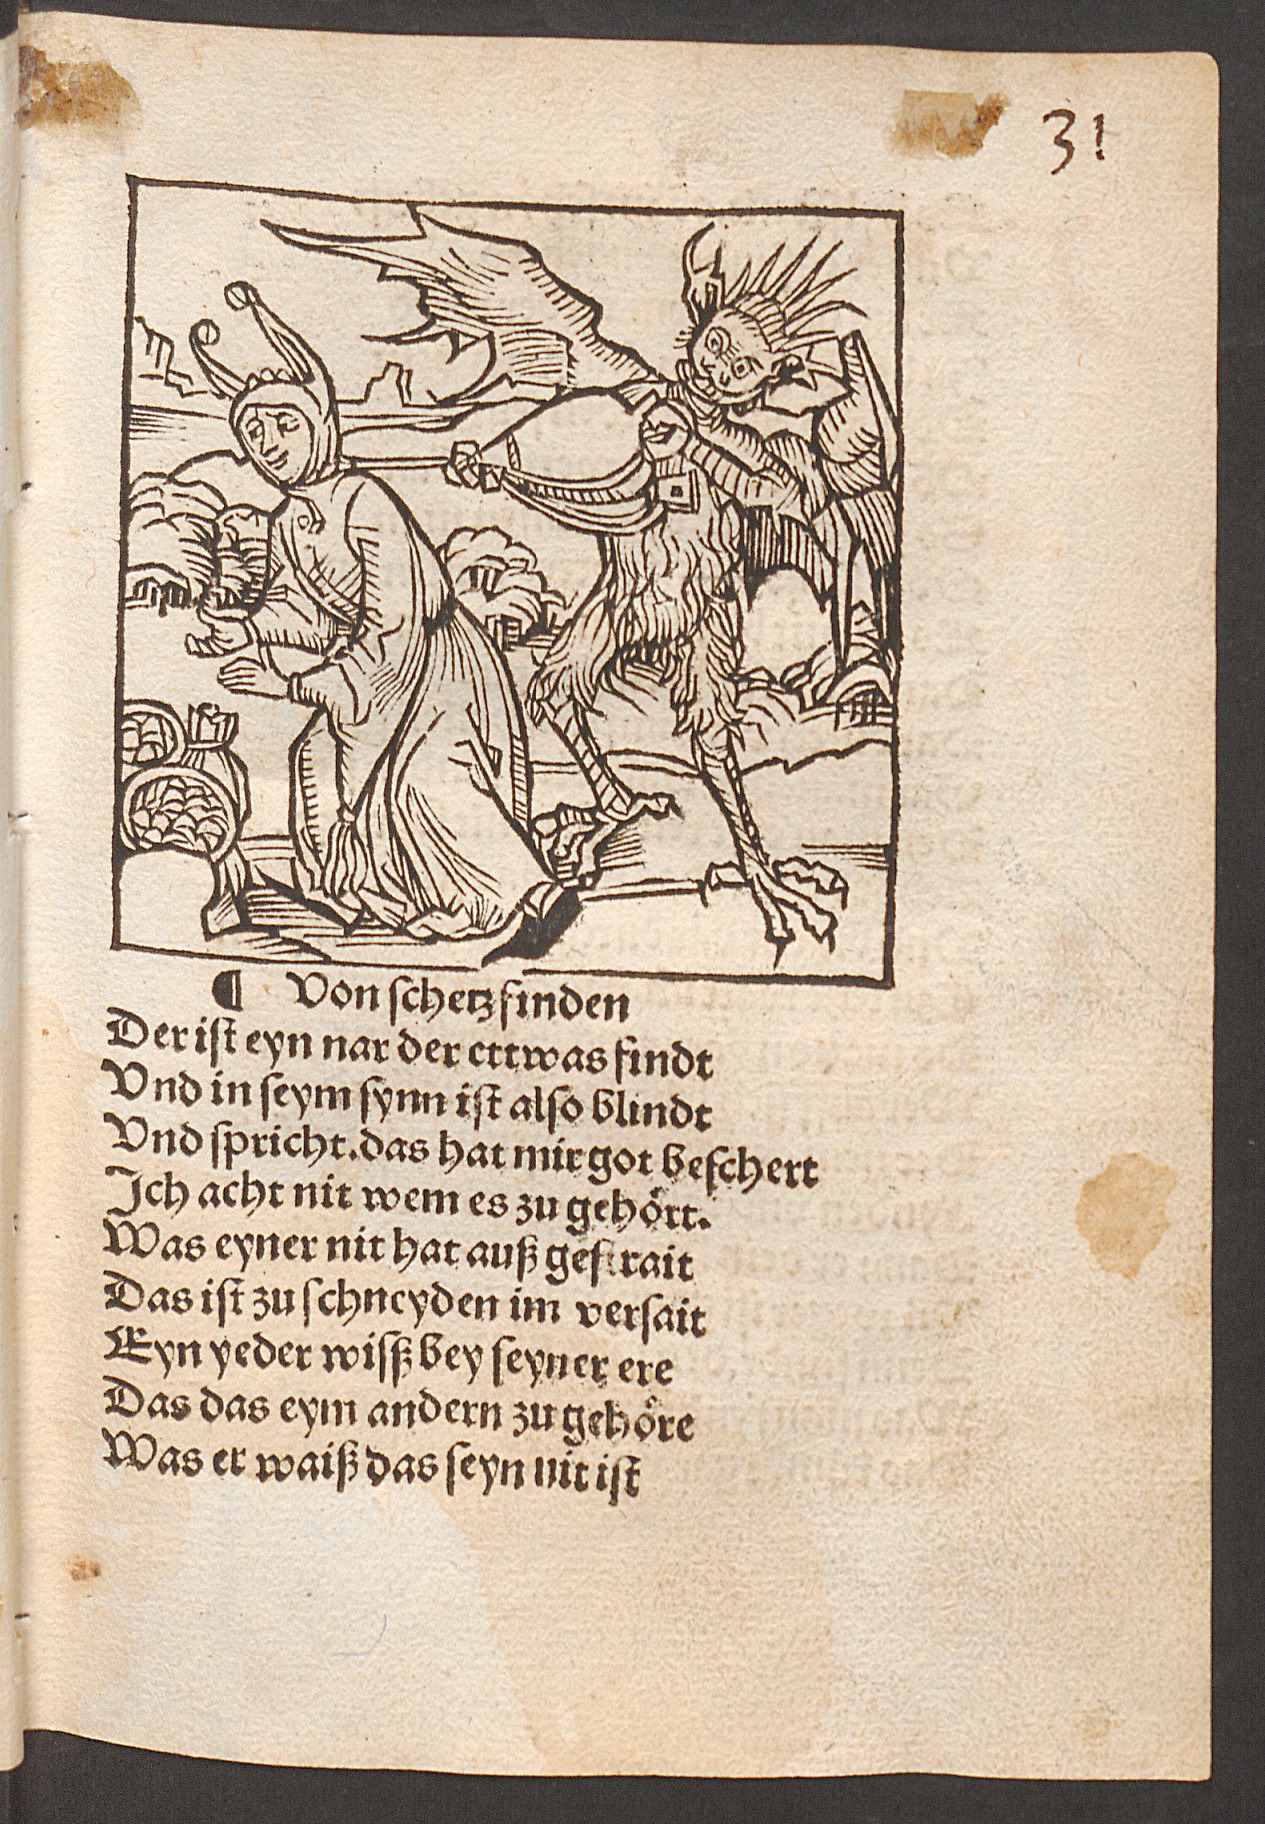 31
¶ Von ſchetz finden
Der iſt eyn nar der ettwas findt
Vnd in ſeym ſynn iſt alſo blindt
Vnd ſpricht. das hat mir got beſchert
Ich acht nit wem es zu gehoͤrt.
Was eyner nit hat auß geſtrait
Das iſt zu ſchneyden im verſait
Eyn yeder wiſß bey ſeyner ere
Das das eym andern zu gehoͤre
Was er waiß das ſeyn nit iſt